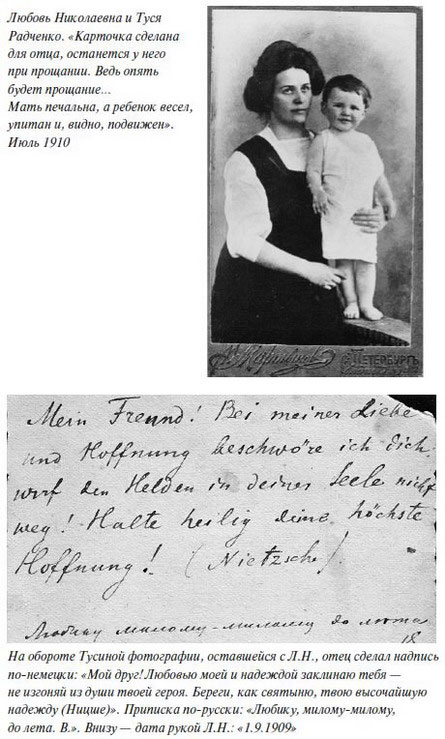 Любовь Николаевна и Туся
Радченко. «Карточка сделана
для отца, останется у него
при прощании. Ведь опять
будет прощание...
Мать печальна, а ребенок весел,
упитан и, видно, подвижен».
Июль 1910
С. ПЕТЕРБУРГЪ
Mein Freund! Bei meiner Liebe
und Hoffnung beschwöre ich dich
wirf den Helden in deiner Seele nicht
weg! Halte heilig deine höchste
Hoffnung! (Nietzsche).
Любику милому-милому до лета
На обороте Тусиной фотографии, оставшейся с Л.Н., отец сделал надпись
по-немецки: «Мой друг! Любовью моей и надеждой заклинаю тебя —
не изгоняй из души твоей героя. Береги, как святыню, твою высочайшую
надежду (Ницше)». Приписка по-русски: «Любику, милому-милому,
до лета. В.». Внизу — дата рукой Л.Н.: «1.9.1909»